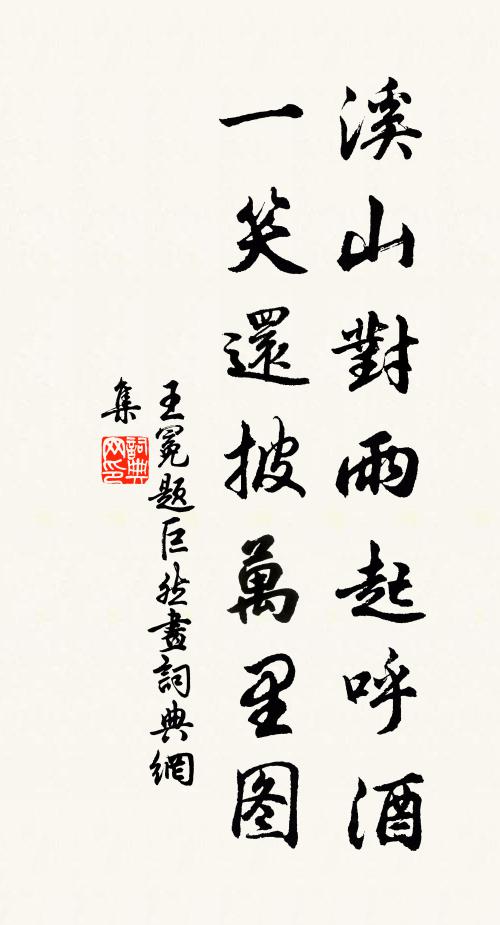 溪山對雨起呼酒
一笑還披萬里图
王冕題巨然畫詞典網
集
詞典
网印